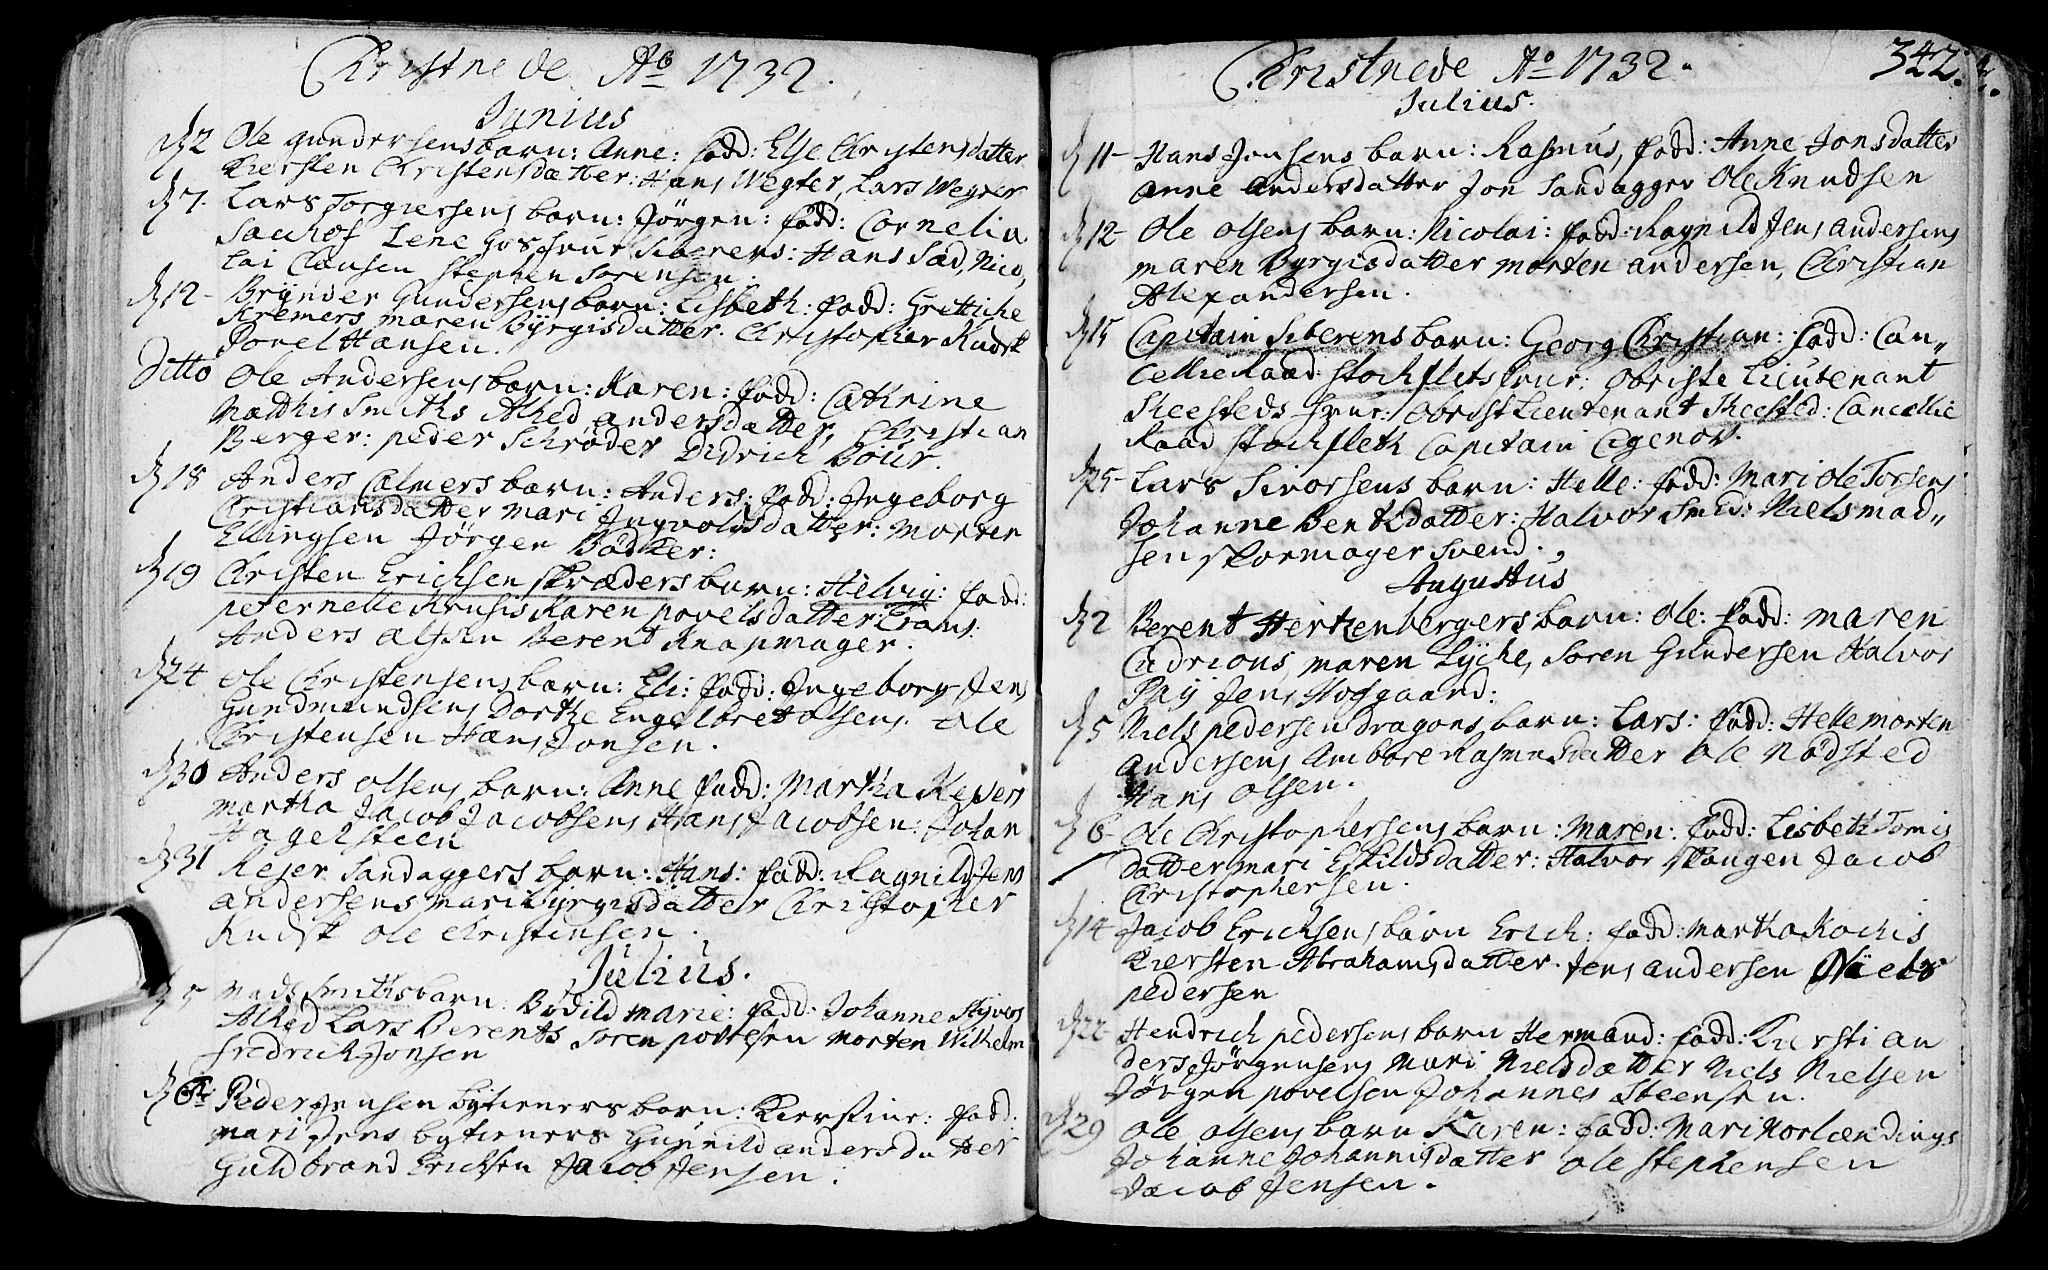 Christnede Ao 1732.
Junius
d 2 Ole Gundersens barn: Anne: fadd: Else Christensdatter
Kiersten Christensdatter: Hans Wegter, Lars Wegter
d 7. Lars Torgiersens barn: Jörgen: fadd: Cornelia
Sauhof Lene Gos frue Siberens: Hans Sad, Nico,
lai Clausen Stephen Sorensen.
d 12- Brynder Gundersens barn: Lisbeth: fadd: Grettiche
Kremers maren Byrgisdatter. Christopher Rudsk
Povel Hansen.
Ditto Ole Andersens barn: Karen: fadd: Cathrine
Matthis Smiths Alhed andersdatter, Christian
Berger: peder Schröder Didrich Bour.
d 18 Anders Calmers barn: Anders: fadd: Jngeborg
Christiansdatter mari Jngvoldsdatter: Morten
Ellingsen Jörgen Bödker:
d 19 Christen Erichsen skræders barn: Helvig: fadd:
peternelle Krusis Karen povelsdatter Trans:
Anders olsen Berent Knapmager.
d 24 Ole Christensens barn: Eli: fadd: Jngeborg Jens
Gundmundsens Dorthe Engelbret olsens. Ole
Christensen Hans Jonsen.
d 30 Anders olsens barn: Anne fadd: Martha Reyers
martha Jacob Jacobsens Hans Jacobsen: Johan
Hagelsteen
d 31 Rejer Sandaggers barn: Hans: fadd: Ragnild Jens
andersens mari Byrgisdatter Christopher
Rudsk Ole Christensen.
Julius.
d 5 Mads Smiths barn: Bodild marie: fadd: Johanne Styvers
Alhed Lars Berents Soren povelsen Morten Wilhelm
fredrich Jonsen
d 6te Peder Jensen bytieners barn: Kierstine: fadd:
mari Jens bytieners Gunnild andersdatter
Guldbrand Erichsen Jacob Jensen.
Christnede Ao 1732. 342.
Julius.
d 11- Hans Jensens barn: Rasmus, fadd: Anne Jonsdatter
Anne Andersdatter Jon Sandagger Ole Knudsen
d 12- Ole olsens barn: Nicolai: fadd: Ragnild Jens Andersens
maren Byrgisdatter morten andersen, Christian
Alexandersen.
d 15 Capitain Siberens barn: Georg Christian: fadd: Can,,
cellie Raad: Stochflets frue: Obriste Lieutenant
Skeesteds frue: Obrist Lieutenant Skeested: Cancellie
Raad Stochfleth Capitain Cigenov.
d 25- Lars Sivorsens barn: Helle: fadd: Mari Ole Torsens
Johanne Bentsdatter: Halvor Smed: Niels mad,,
sen skormager svend.
Augustus
d 2 Berent Hertzenbergers barn: Ole: fadd: maren
Cudrious, maren Lyche, Soren Gundersen Halvor
Phy Jens Hofgaard:
d 5 Niels pedersen dragons barn: Lars: fadd: Helle morten
andersens Ambore Rasmusdatter Ole Nödsted
Hans olsen.
d 6- Ole Christophersens barn: Maren: fadd: Lisbeth Tomis
datter mari Eskildsdatter: Halvor Skougen Jacob
Christophersen.
d 14 Jacob Erichsens barn Erich: fadd: Martha Kochis
Kiersten Abrahamsdatter. Jens andersen Niels
pedersen
d 22- Hendrich pedersens barn Hermand: fadd: Kiersti an
ders Jörgensens Mari Nielsdatter Niels Nielsen
Jörgen povelsen Johannes Steensen.
d 29 Ole olsens barn Karen: fadd: Mari Norlændings
Johanne Johannisdatter Ole Stephensen
Jacob Jensen.